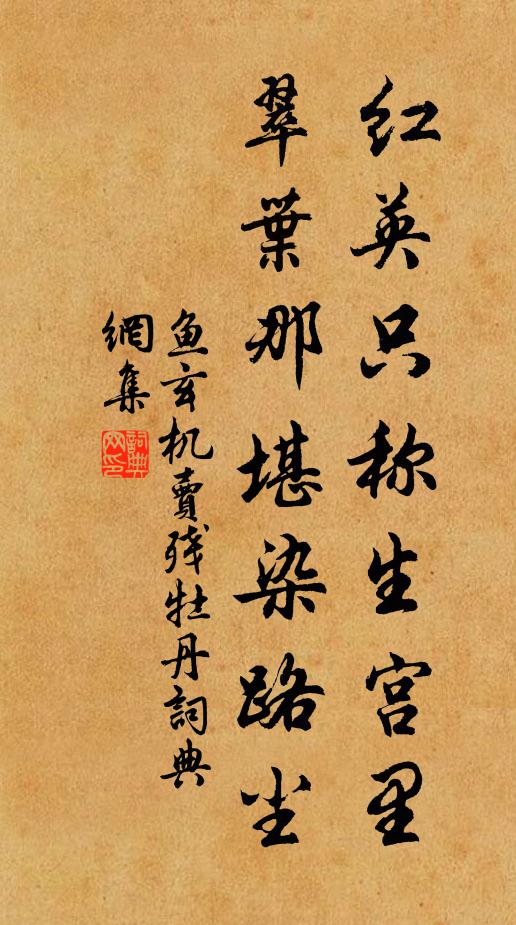 红英只称生宫里
翠葉那堪染路尘
鱼玄机賣残牡丹詞典
網集
詞典
网印